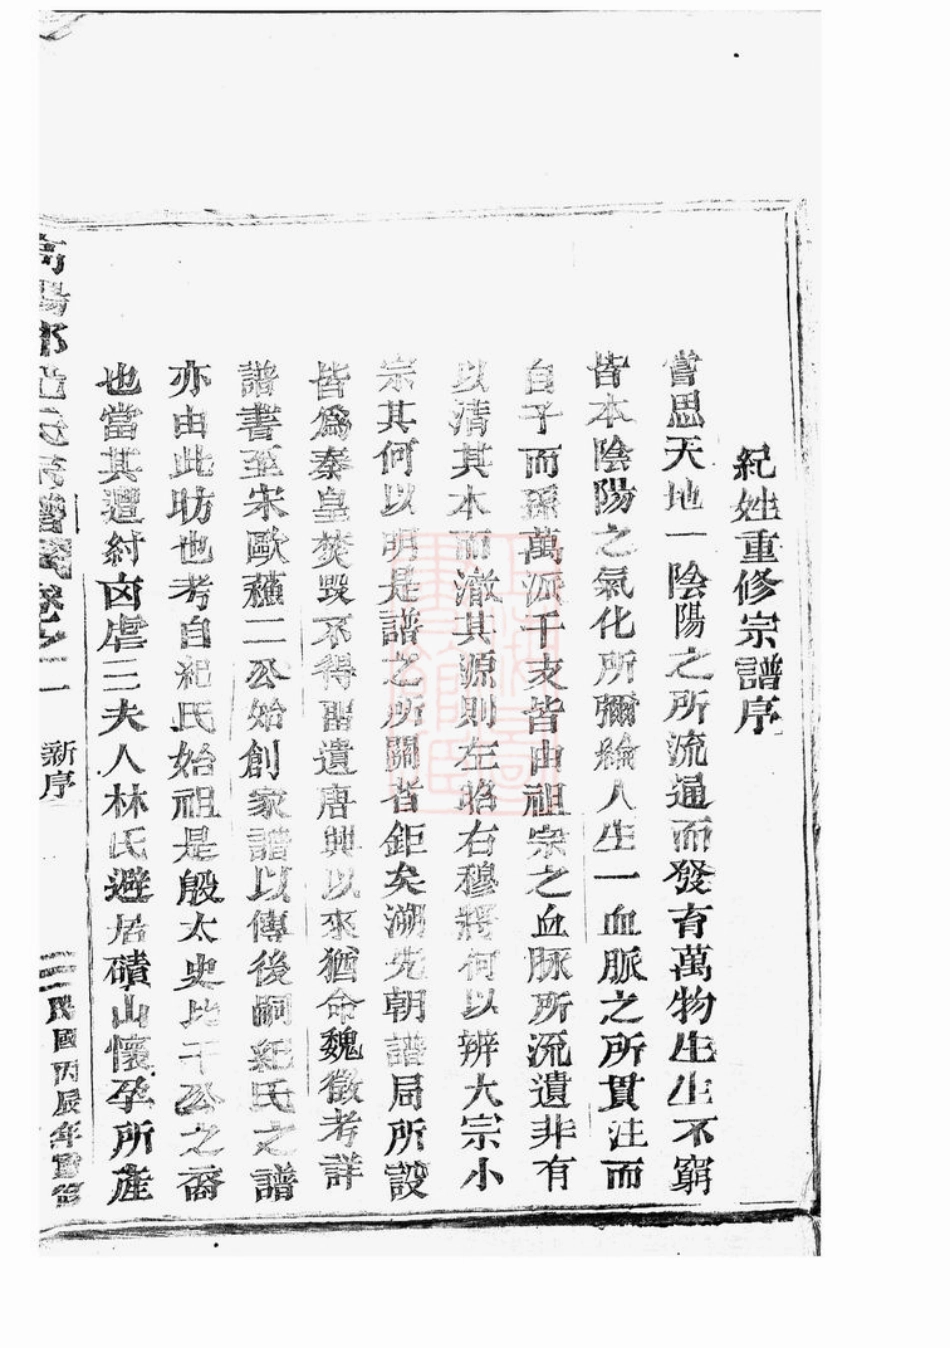 紀姓重修宗譜序
嘗思天地一陰陽之所流通而發育萬物生生不窮
皆本陰陽之氣化所彌綸人生一血脈之所貫注而
自子而孫萬派千支皆由祖宗之血脉所流遺非有
以清其本而澈其源則左昭右穆將何以辨大宗小
宗其何以明是譜之所關者鉅矣溯先朝譜局所設
皆爲秦皇焚毀不得留遺唐興以來猶命魏徵考詳
譜書至宋歐蘓二公始創家譜以傳後嗣紀氏之譜
亦由此昉也考自紀氏始祖是殷太史比干公之裔
也當其遭紂凶虐三夫人林氏避居磧山懷孕所產
高陽郡紀氏宗譜卷之一 新序 民國丙辰年重